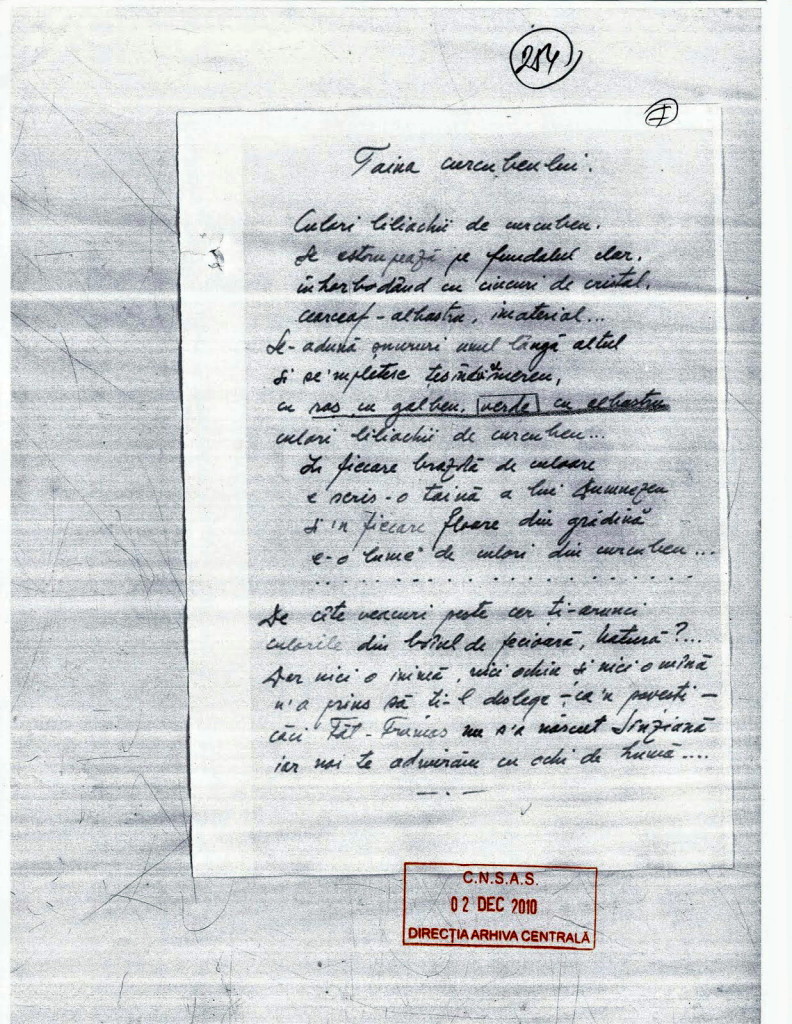 254
Taina curcubeului.
Culori liliachii de curcubeu.
Se estompează pe fundalul clar,
înhorbodând cu ciucuri de cristal,
cearceaf - albastru, imaterial...
Se-adună șnururi unul lângă altul
Și se'mpletesc țesîndu mereu,
cu roș cu galben, verde cu albastru
culori liliachii de curcubeu...
În fiecare brazdă de culoare
e scris-o taină a lui Dumnezeu
Și'n fiecare floare din grădină
e-o lume de culori din curcubeu...
. . . . . . . . . . . . . . . . .
De câte veacuri peste cer ți-arunci
culorile din boiul de fecioară, Natură?...
Dar nici o inimă, nici ochiu și nici o mînă
n'a prins să ți-l dezlege - ca'n povesti -
căci Făt-Frumos nu s'a născut Sînziană
iar noi te admirăm cu ochi de humă....
— . —
C.N.S.A.S.
02 DEC 2010
DIRECȚIA ARHIVA CENTRALĂ